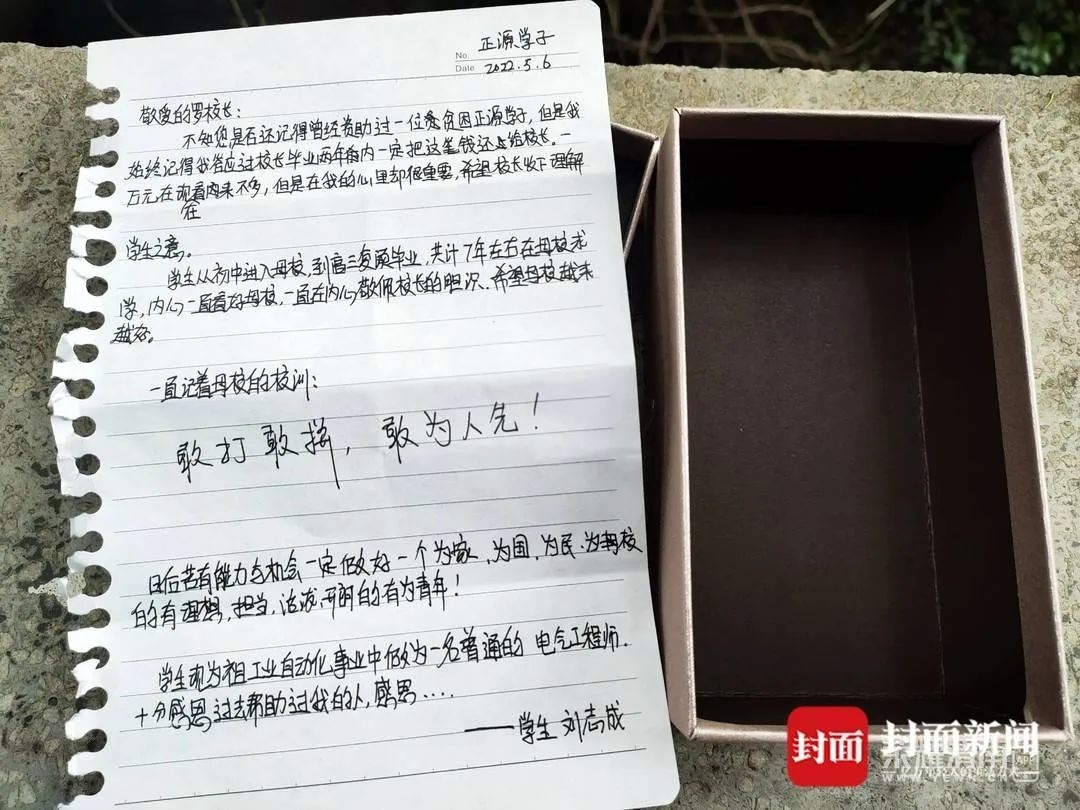 No. 正源学子
Date 2022.5.6
敬爱的罗校长：
不知您是否还记得曾经资助过一位贫困正源学子，但是我
始终记得我答应过校长毕业两年内一定把这笔钱还上给校长。一
万元在现在看来不多，但是在我的心里却很重要，希望校长收下理解
学生之意。
学生从初中进入母校，到高三复读毕业，共计7年左右在母校求
学，内心一直看好母校，一直在内心敬佩校长的胆识。希望母校越来
越好。
一直记着母校的校训：
敢打敢拼，敢为人先！
日后若有能力与机会一定做好一个为家、为国、为民、为母校
的有理想，担当，活泼开朗的有为青年！
学生现为祖工业自动化事业中做为一名普通的 电气工程师.
十分感恩过去帮助过我的人，感恩....
——学生 刘志成
封面
封面新闻
APP